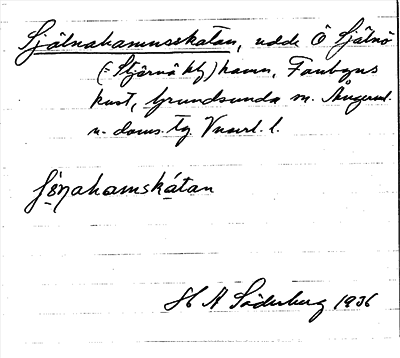 Själnahamnsskatan, udde Ö Själnö
(= Stjärnö hlg) hamn, Fanbyns
kust, Grundsunda sn. Ångerml.
n. doms. tg Vnorrl. l.
ʃö̀ŋahamskátan
H A Söderberg 1936